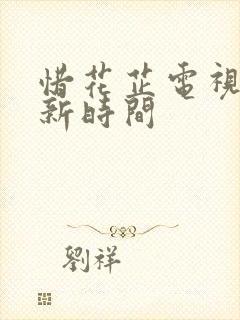 惜花芷電視
新時間
劉祥